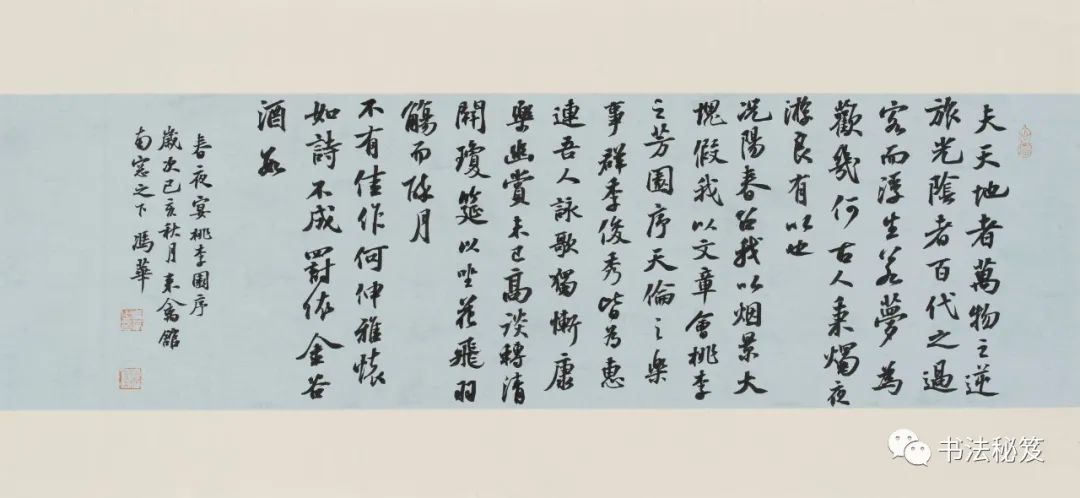 夫天地者萬物之逆
旅光陰者百代之過
客而浮生若夢為
歡幾何古人秉燭夜
游良有以也
況陽春召我以烟景大
塊假我以文章會桃李
之芳園序天倫之樂
事群季俊秀皆為惠
連吾人詠歌獨慚康
樂幽賞未已高談轉清
開瓊筵以坐花飛羽
觴而醉月
不有佳作何伸雅懷
如詩不成罰依金谷
酒數
春夜宴桃李園序
歲次己亥秋月來禽館
南窓之下馮華
书法秘笈